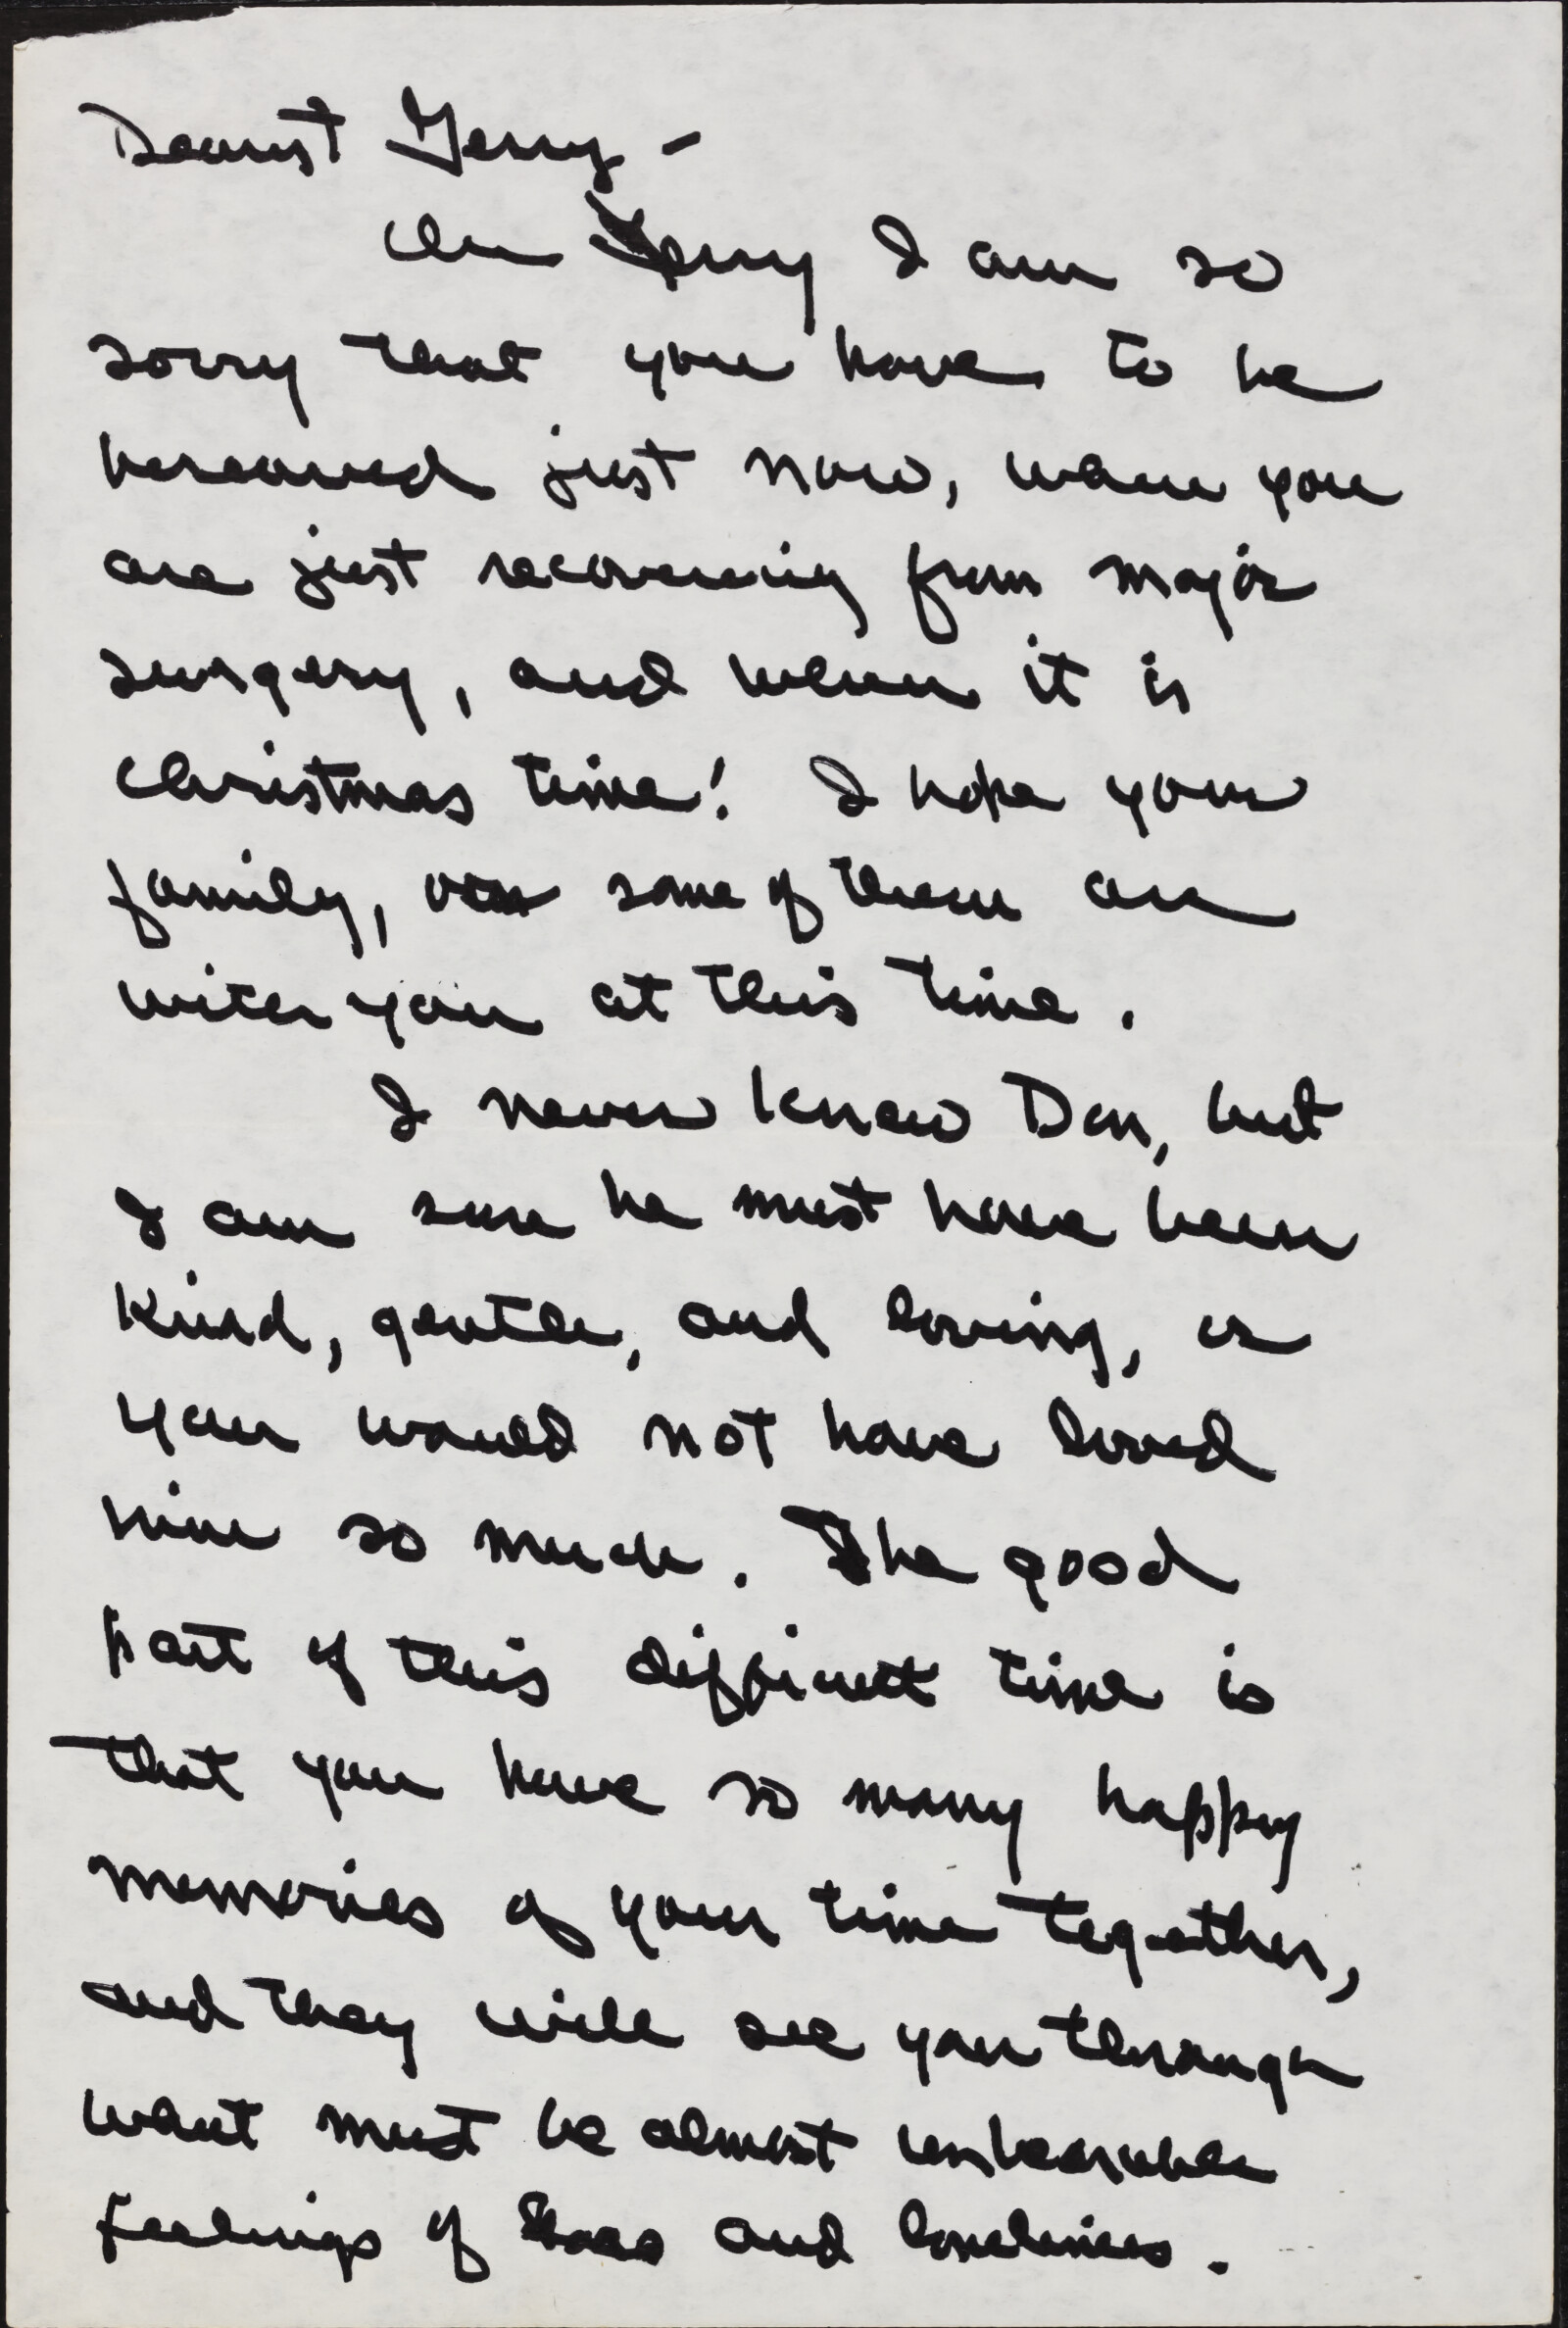 Dearest Gerry -
Oh Gerry I am so
sorry that you have to be
bereaved just now, when you
are just recovering from major
surgery, and when it is
Christmas time! I hope your
family, some of them are
with you at this time.
I never knew Don, but
I am sure he must have been
kind, gentle, and loving, or
you would not have loved
him so much. The good
part of this difficult time is
that you have so many happy
memories of your time together,
and they will see you through
what must be almost unbearable
feelings of loss and loneliness.